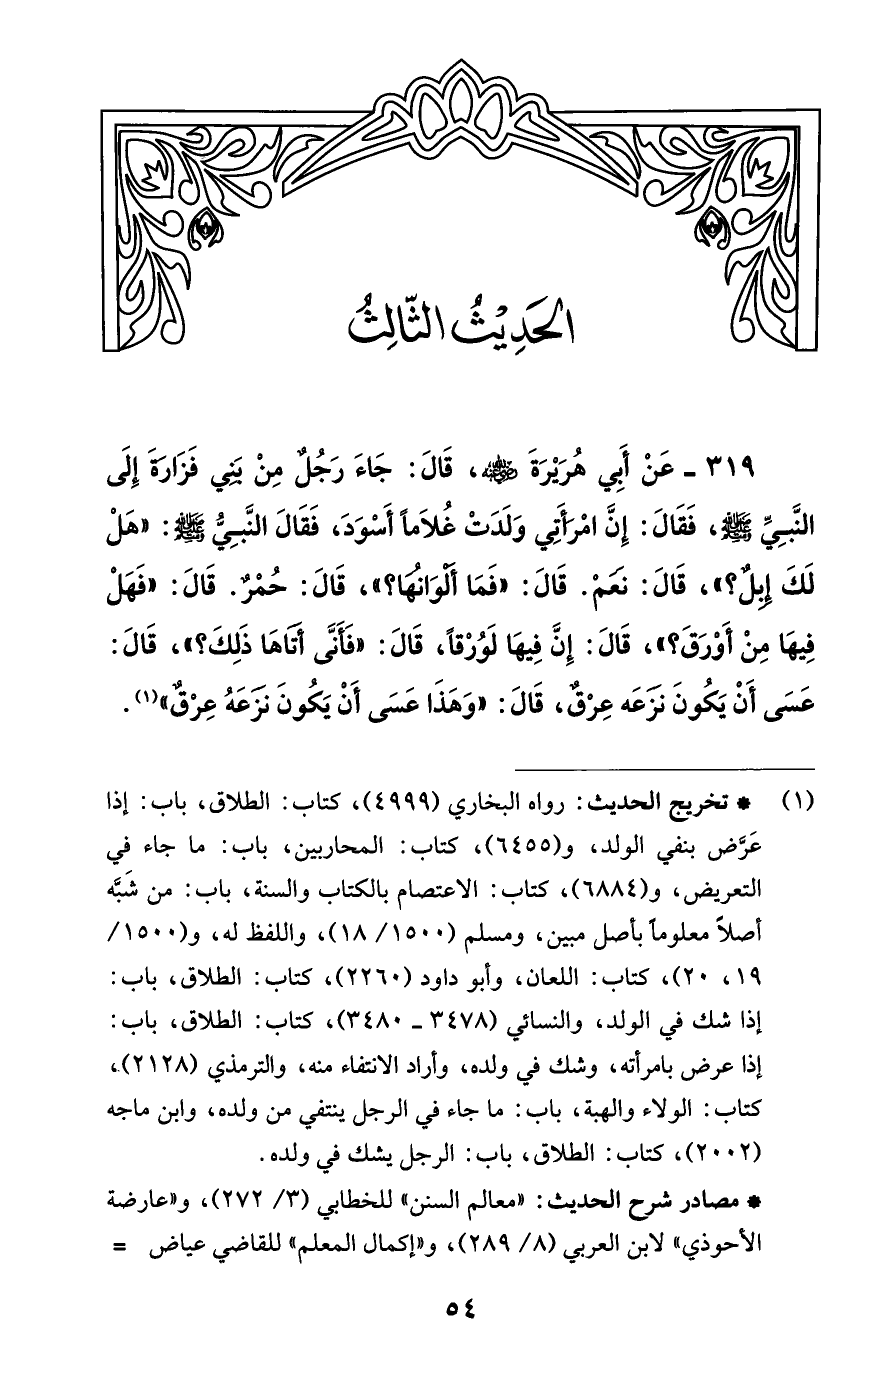 الحَدِيْثُ الثَّالِثُ
٣١٩ ـ عَنْ أَبِي هُرَيْرَةَ رضي الله عنه، قَالَ: جَاءَ رَجُلٌ مِنْ بَنِي فَزَارَةَ إِلَى
النَّبِيِّ ﷺ، فَقَالَ: إِنَّ امْرَأَتِي وَلَدَتْ غُلَاماً أَسْوَدَ، فَقَالَ النَّبِيُّ ﷺ: «هَلْ
لَكَ إِبِلٌ؟»، قَالَ: نَعَمْ. قَالَ: «فَمَا أَلْوَانُهَا؟»، قَالَ: حُمْرٌ. قَالَ: «فَهَلْ
فِيهَا مِنْ أَوْرَقَ؟»، قَالَ: إِنَّ فِيهَا لَوُرْقاً، قَالَ: «فَأَنَّى أَتَاهَا ذَلِكَ؟»، قَالَ:
عَسَى أَنْ يَكُونَ نَزَعَه عِرْقٌ، قَالَ: «وَهَذَا عَسَى أَنْ يَكُونَ نَزَعَهُ عِرْقٌ»(١).
(١) * تخريج الحديث: رواه البخاري (٤٩٩٩)، كتاب: الطلاق، باب: إذا
عَرَّض بنفي الولد، و(٦٤٥٥)، كتاب: المحاربين، باب: ما جاء في
التعريض، و(٦٨٨٤)، كتاب: الاعتصام بالكتاب والسنة، باب: من شَبَّه
أصلاً معلوماً بأصل مبين، ومسلم (١٥٠٠/ ١٨)، واللفظ له، و(١٥٠٠/
١٩، ٢٠)، كتاب: اللعان، وأبو داود (٢٢٦٠)، كتاب: الطلاق، باب:
إذا شك في الولد، والنسائي (٣٤٧٨ ـ ٣٤٨٠)، كتاب: الطلاق، باب:
إذا عرض بامرأته، وشك في ولده، وأراد الانتفاء منه، والترمذي (٢١٢٨)،
كتاب: الولاء والهبة، باب: ما جاء في الرجل ينتفي من ولده، وابن ماجه
(٢٠٠٢)، كتاب: الطلاق، باب: الرجل يشك في ولده.
* مصادر شرح الحديث: «معالم السنن» للخطابي (٣/ ٢٧٢)، و«عارضة
الأحوذي» لابن العربي (٨/ ٢٨٩)، و«إكمال المعلم» للقاضي عياض =
٥٤